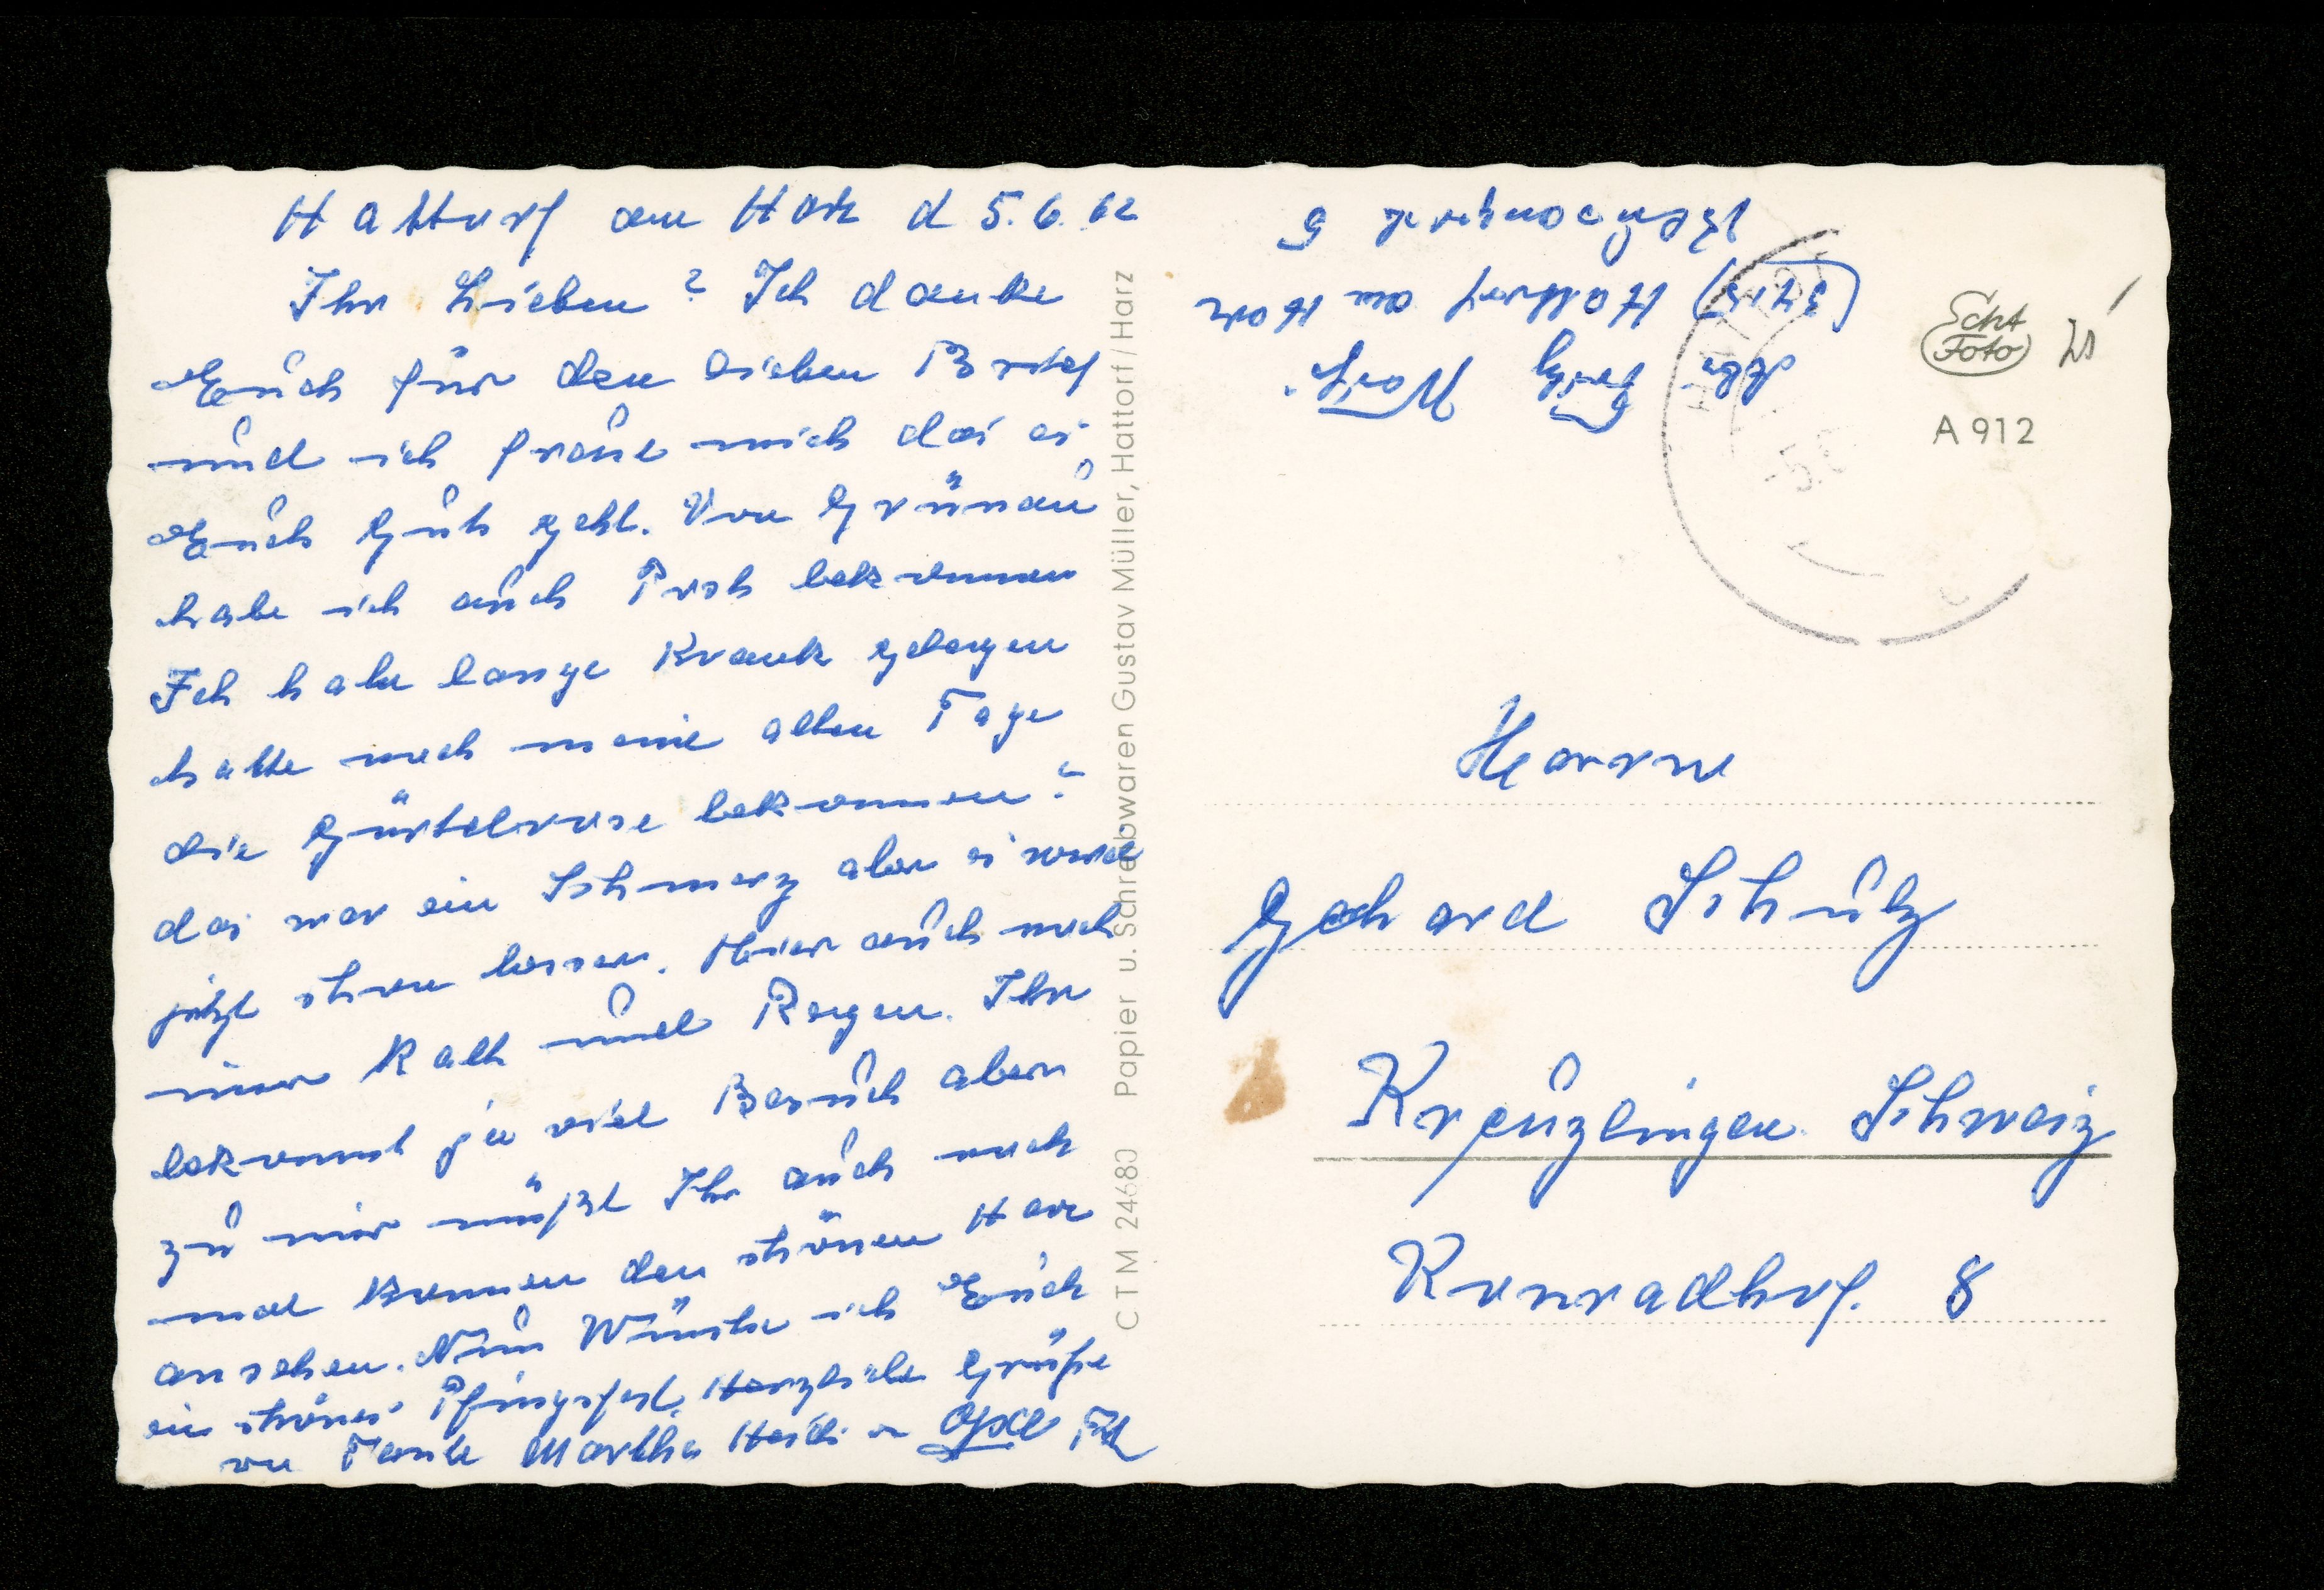 Hattorf am Harz d 5.6.62
Ihr Lieben? Ich danke
Euch für den lieben Brief
und ich freue mich das es
Euch Gut geht. Von Grünau
habe ich auch Post bekommen
Ich habe lange Krank gelegen
hatte noch meine alten Tage
die Gürtelrose bekommen?
das war ein Schmerz aber es wird
jetzt schon besser. Hier auch noch
immer Kalt und Regen. Ihr
bekommt ja viel Besuch aber
zu mir müßt Ihr auch noch
mal kommen den schönen Harz
ansehen. Nun Wünsche ich Euch
ein schönes Pfingsfest. Herzliche Grüße
von Tante Martha Heidi u
CTM 24680 Papier u. Schreibwaren Gustav Müller, Hattorf/Harz
Abs. Fritz
Hattorf am Harz
5
Echt
Foto
A 912
Herrn
Gerhard Schulz
Kreuzlingen Schweiz
Konradhof. 8